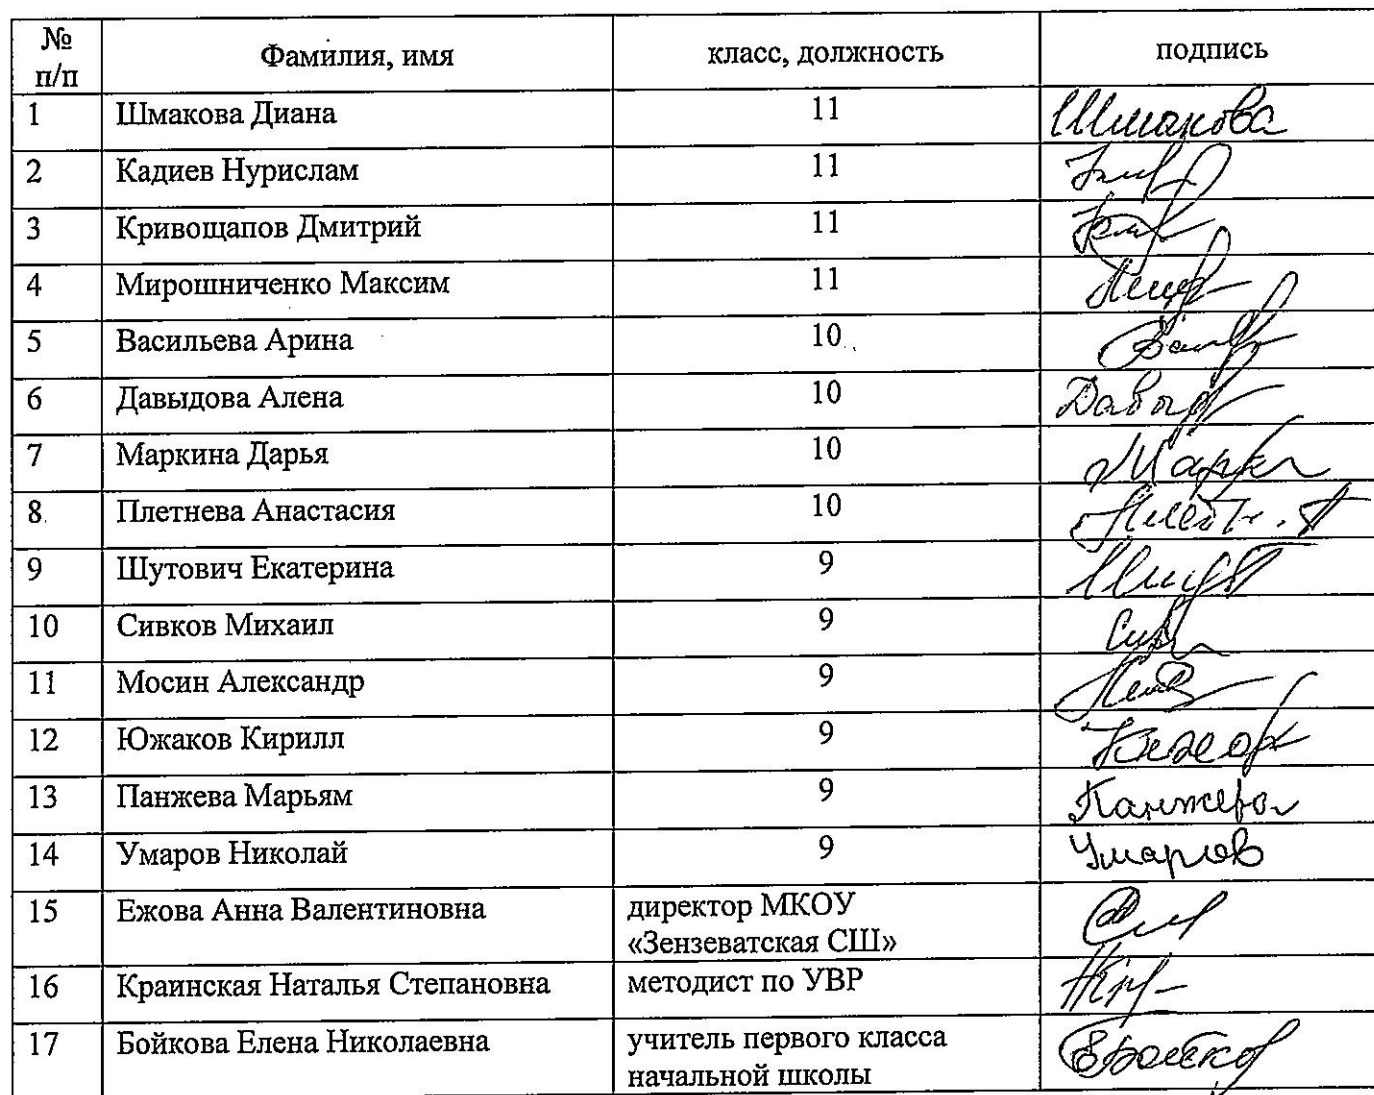 № п/п Фамилия, имя класс, должность подпись
1 Шмакова Диана 11 Шмакова
2 Кадиев Нурислам 11
3 Кривощапов Дмитрий 11
4 Мирошниченко Максим 11
5 Васильева Арина 10
6 Давыдова Алена 10
7 Маркина Дарья 10
8 Плетнева Анастасия 10
9 Шутович Екатерина 9
10 Сивков Михаил 9
11 Мосин Александр 9
12 Южаков Кирилл 9
13 Панжева Марьям 9 Панжева
14 Умаров Николай 9 Умаров
15 Ежова Анна Валентиновна директор МКОУ
«Зензеватская СШ»
16 Краинская Наталья Степановна методист по УВР
17 Бойкова Елена Николаевна учитель первого класса
начальной школы